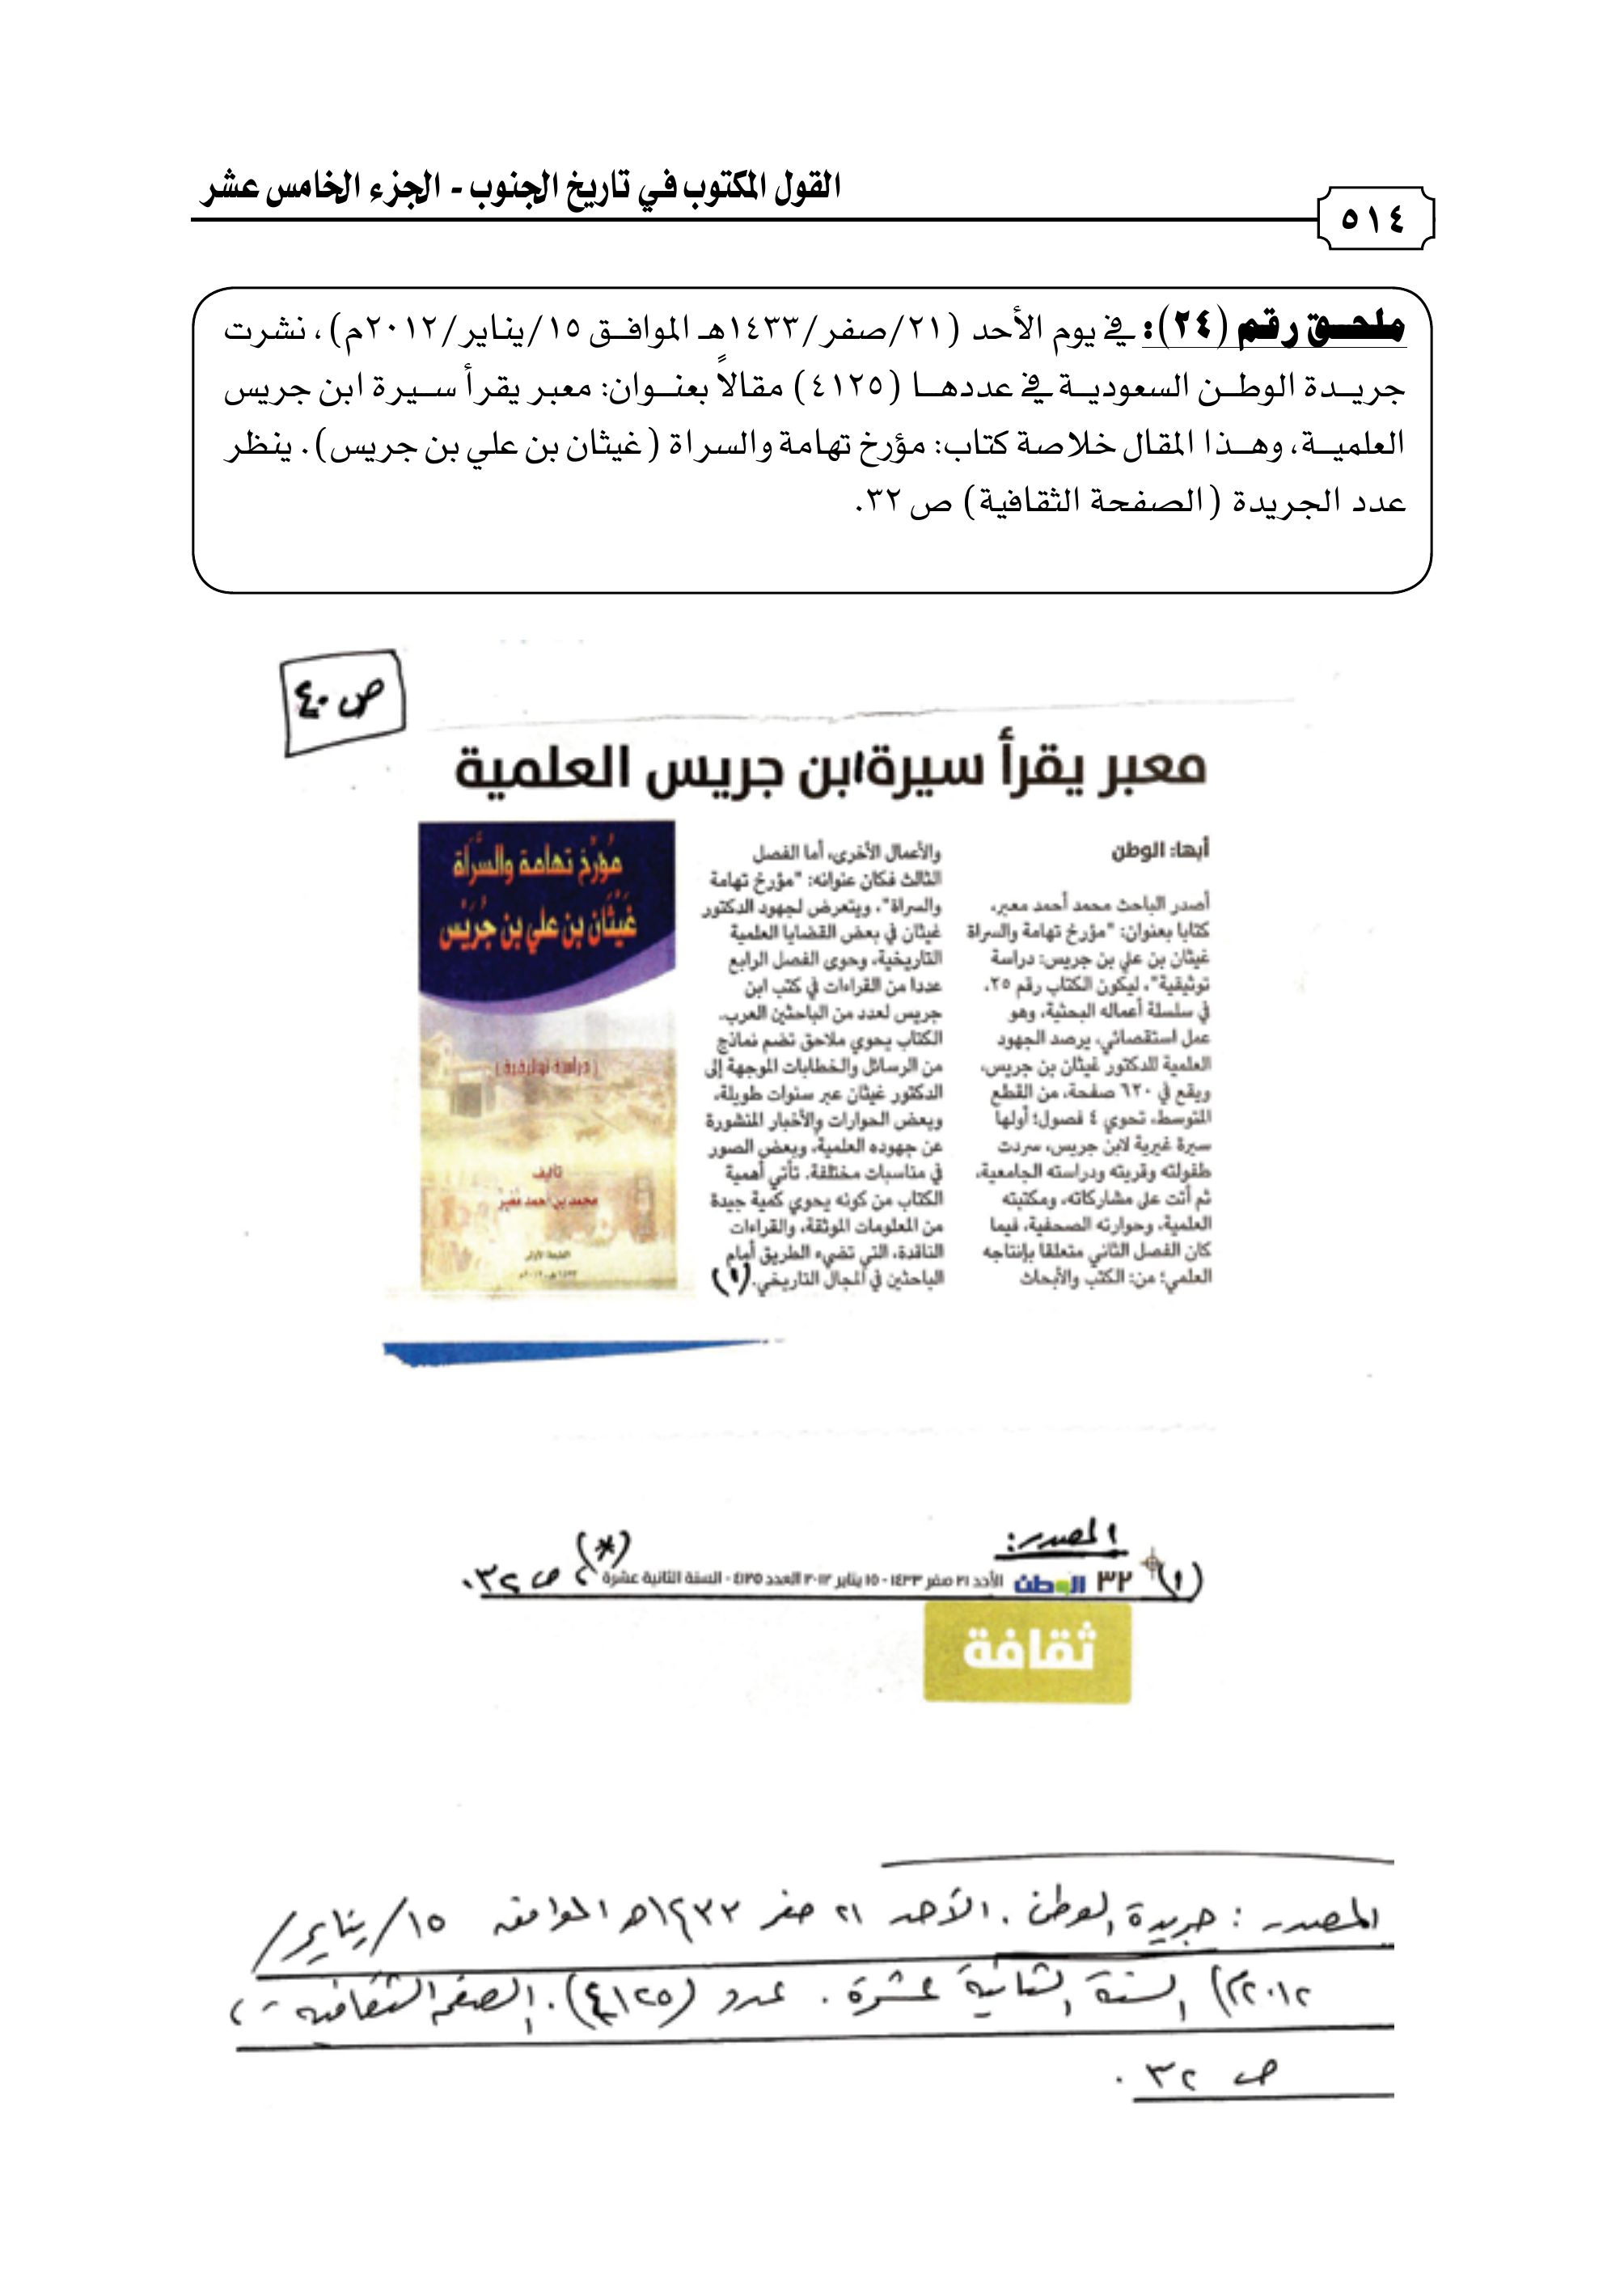 القول المكتوب في تاريخ الجنوب - الجزء الخامس عشر
٥١٤
ملحق رقم (٢٤): في يوم الأحد (٢١/صفر/١٤٣٣هـ الموافق ١٥/يناير/٢٠١٢م)، نشرت
جريدة الوطن السعودية في عددها (٤١٢٥) مقالاً بعنوان: معبر يقرأ سيرة ابن جريس
العلمية، وهذا المقال خلاصة كتاب: مؤرخ تهامة والسراة (غيثان بن علي بن جريس). ينظر
عدد الجريدة (الصفحة الثقافية) ص ٣٢.
ص ٤٠
معبر يقرأ سيرة ابن جريس العلمية
أبها: الوطن
أصدر الباحث محمد أحمد معبر،
كتابا بعنوان: "مؤرخ تهامة والسراة
غيثان بن علي بن جريس: دراسة
توثيقية"، ليكون الكتاب رقم ٢٥،
في سلسلة أعماله البحثية، وهو
عمل استقصائي، يرصد الجهود
العلمية للدكتور غيثان بن جريس،
ويقع في ٦٢٠ صفحة، من القطع
المتوسط، تحوي ٤ فصول؛ أولها
سيرة غيرية لابن جريس، سردت
طفولته وقريته ودراسته الجامعية،
ثم أتت على مشاركاته، ومكتبته
العلمية، وحوارته الصحفية، فيما
كان الفصل الثاني متعلقا بإنتاجه
العلمي؛ من: الكتب والأبحاث
والأعمال الأخرى، أما الفصل
الثالث فكان عنوانه: "مؤرخ تهامة
والسراة"، ويتعرض لجهود الدكتور
غيثان في بعض القضايا العلمية
التاريخية، وحوى الفصل الرابع
عددا من القراءات في كتب ابن
جريس لعدد من الباحثين العرب.
الكتاب يحوي ملاحق تضم نماذج
من الرسائل والخطابات الموجهة إلى
الدكتور غيثان عبر سنوات طويلة،
وبعض الحوارات والأخبار المنشورة
عن جهوده العلمية، وبعض الصور
في مناسبات مختلفة. تأتي أهمية
الكتاب من كونه يحوي كمية جيدة
من المعلومات الموثقة، والقراءات
الناقدة، التي تضيء الطريق أمام
الباحثين في المجال التاريخي. (١)
مُؤرّخ تهامة والسَّرَاة
غَيْثَان بن علي بن جُرَيْس
(دراسة توثيقية)
تأليف
محمد بن أحمد مُعَبِّر
الطبعة الأولى
المصدر:
(١) ٣٢ الوطن الأحد ٢١ صفر ١٤٣٣ - ١٥ يناير ٢٠١٢ العدد ٤١٢٥ - السنة الثانية عشرة (*) ، ص ٣٢.
ثقافة
المصدر: جريدة الوطن. الأحد ٢١ صفر ١٤٣٣هـ الموافق ١٥/يناير/
٢٠١٢م) السنة الثانية عشرة. عدد (٤١٢٥). الصفحة الثقافية،
ص ٣٢.